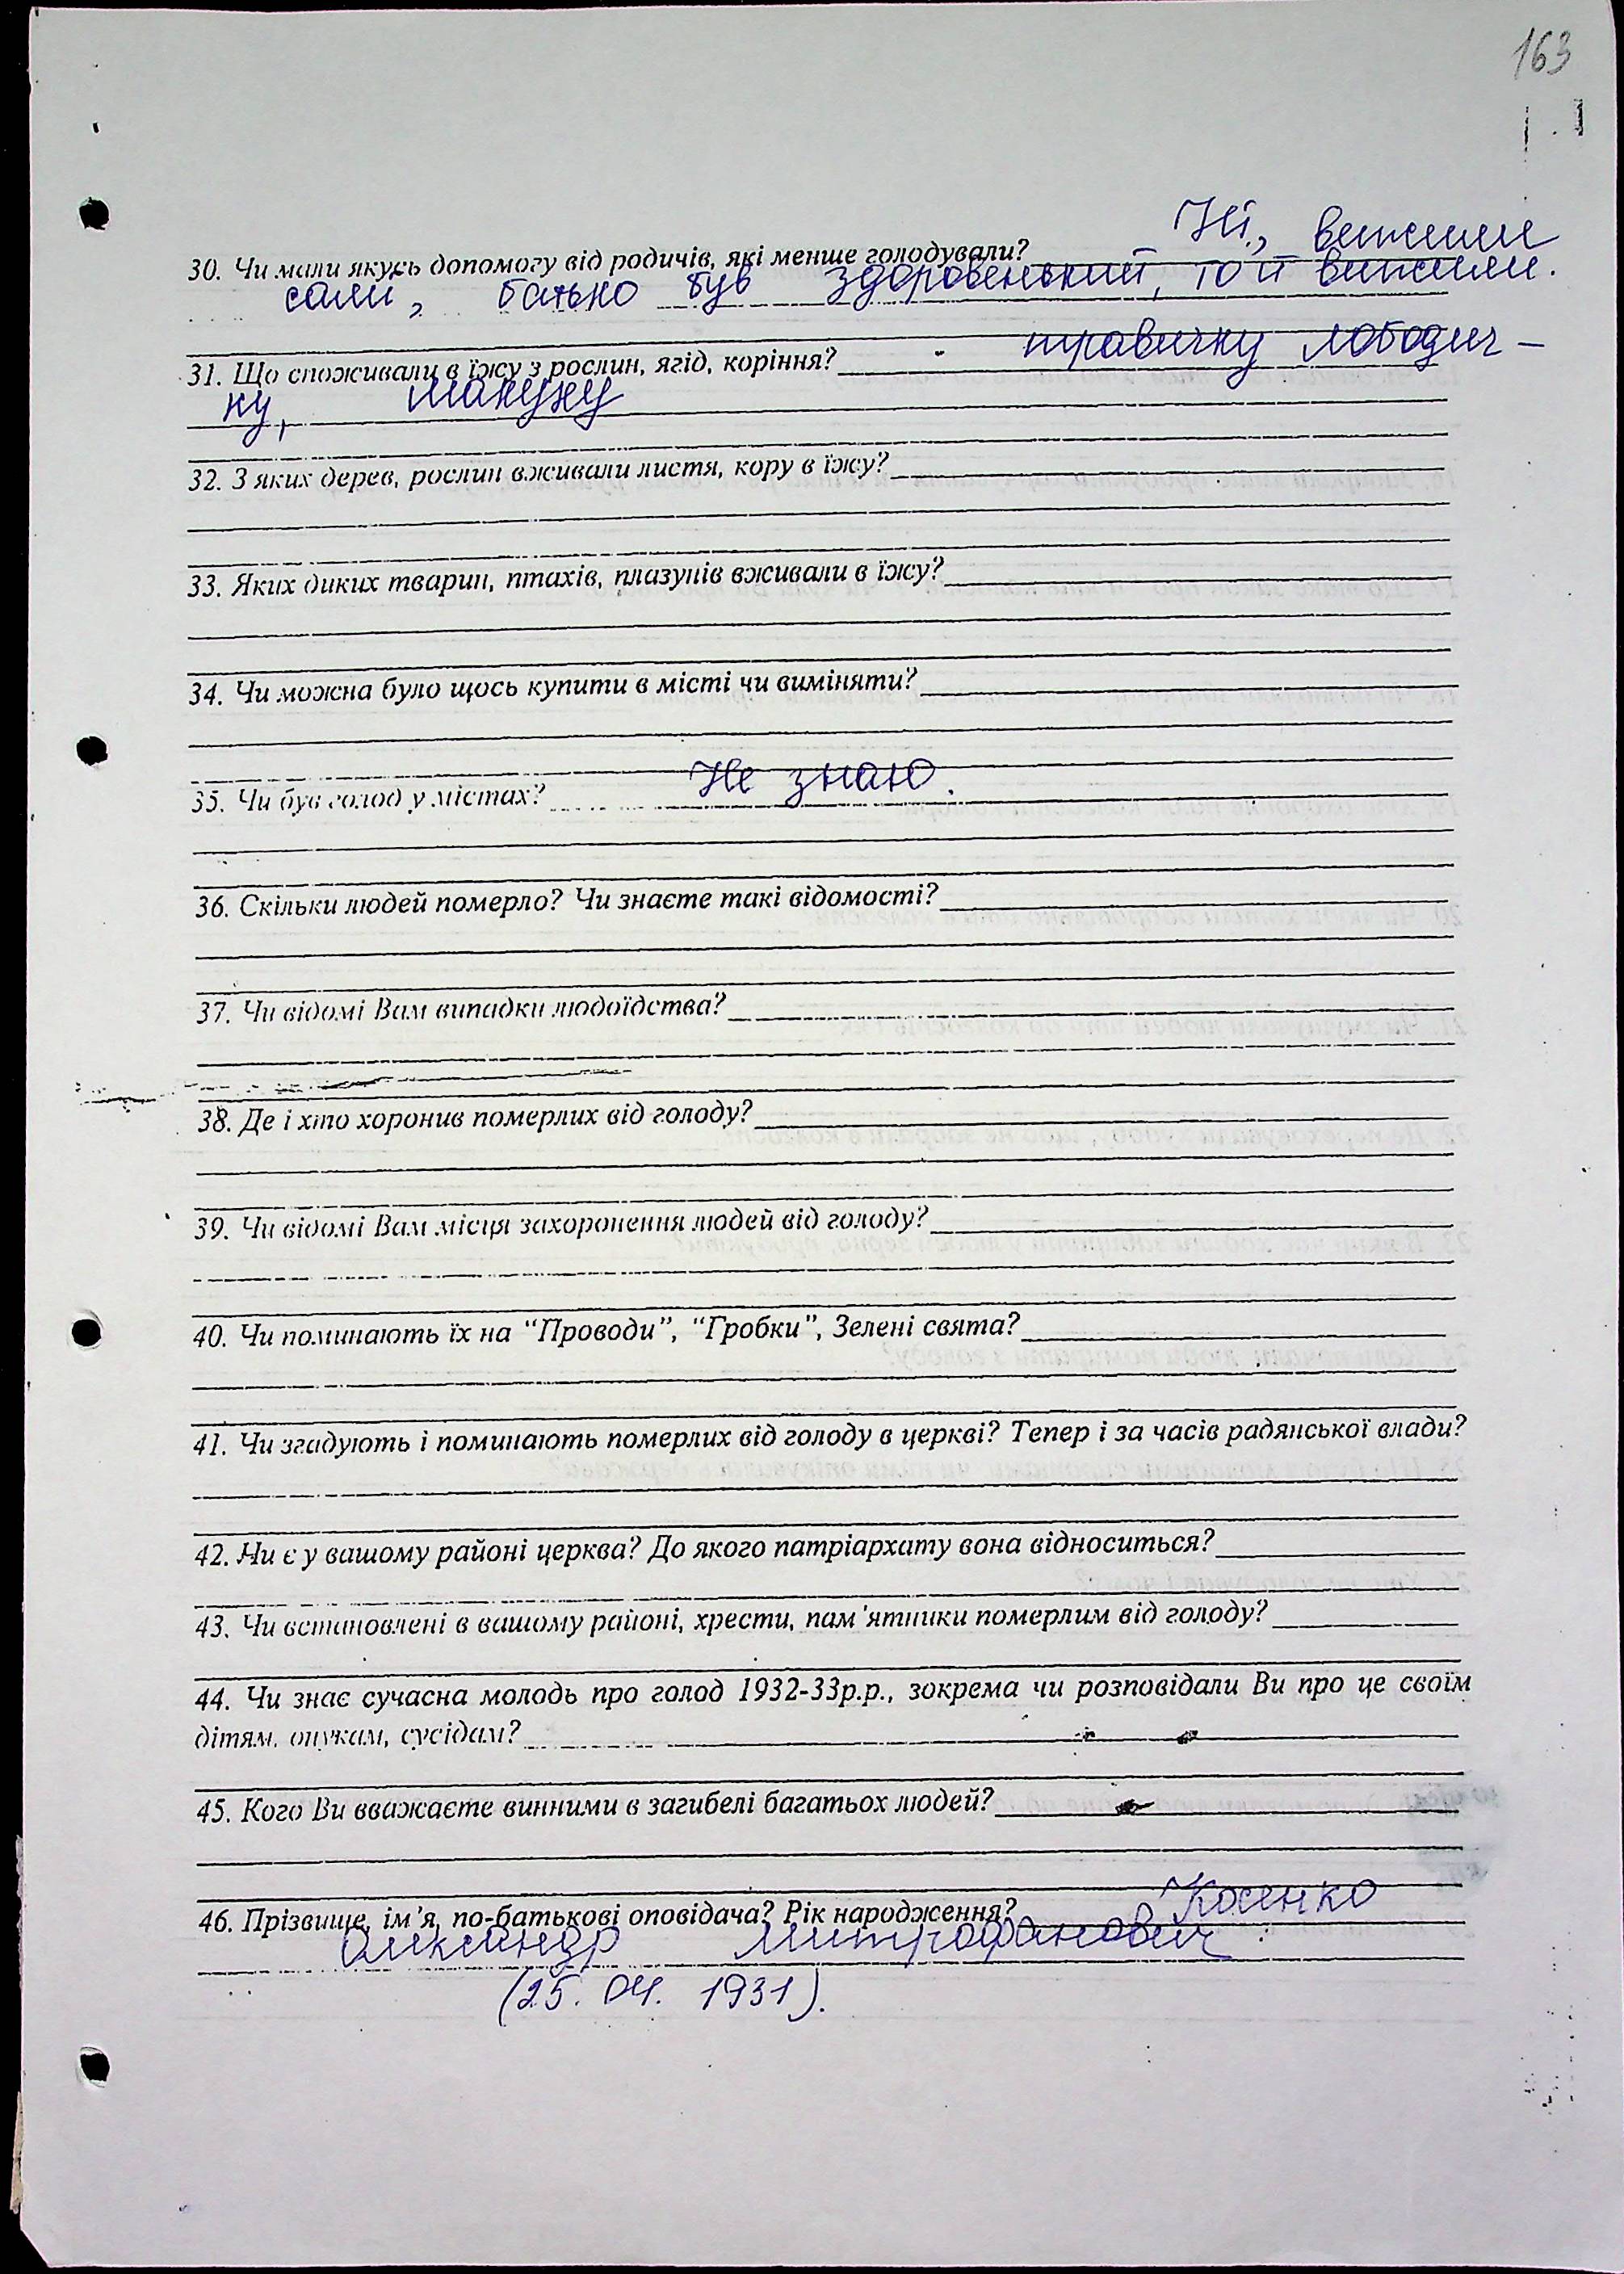 163
30. Чи мали якусь допомогу від родичів, які менше голодували? Ні, вижили
сами, батько був здоровенький, то й вижили.
31. Що споживали в їжу з рослин, ягід, коріння? травичку лободич-
ку, макуху
32. З яких дерев, рослин вживали листя, кору в їжу?
33. Яких диких тварин, птахів, плазунів вживали в їжу?
34. Чи можна було щось купити в місті чи виміняти?
35. Чи був голод у містах? Не знаю.
36. Скільки людей померло? Чи знаєте такі відомості?
37. Чи відомі Вам випадки людоїдства?
38. Де і хто хоронив померлих від голоду?
39. Чи відомі Вам місця захоронення людей від голоду?
40. Чи поминають їх на “Проводи”, “Гробки”, Зелені свята?
41. Чи згадують і поминають померлих від голоду в церкві? Тепер і за часів радянської влади?
42. Чи є у вашому районі церква? До якого патріархату вона відноситься?
43. Чи встановлені в вашому районі, хрести, пам'ятники померлим від голоду?
44. Чи знає сучасна молодь про голод 1932-33р.р., зокрема чи розповідали Ви про це своїм
дітям, онукам, сусідам?
45. Кого Ви вважаєте винними в загибелі багатьох людей?
46. Прізвище, ім’я, по-батькові оповідача? Рік народження? Косенко
Олександр Митрофанович
(25. 04. 1931).